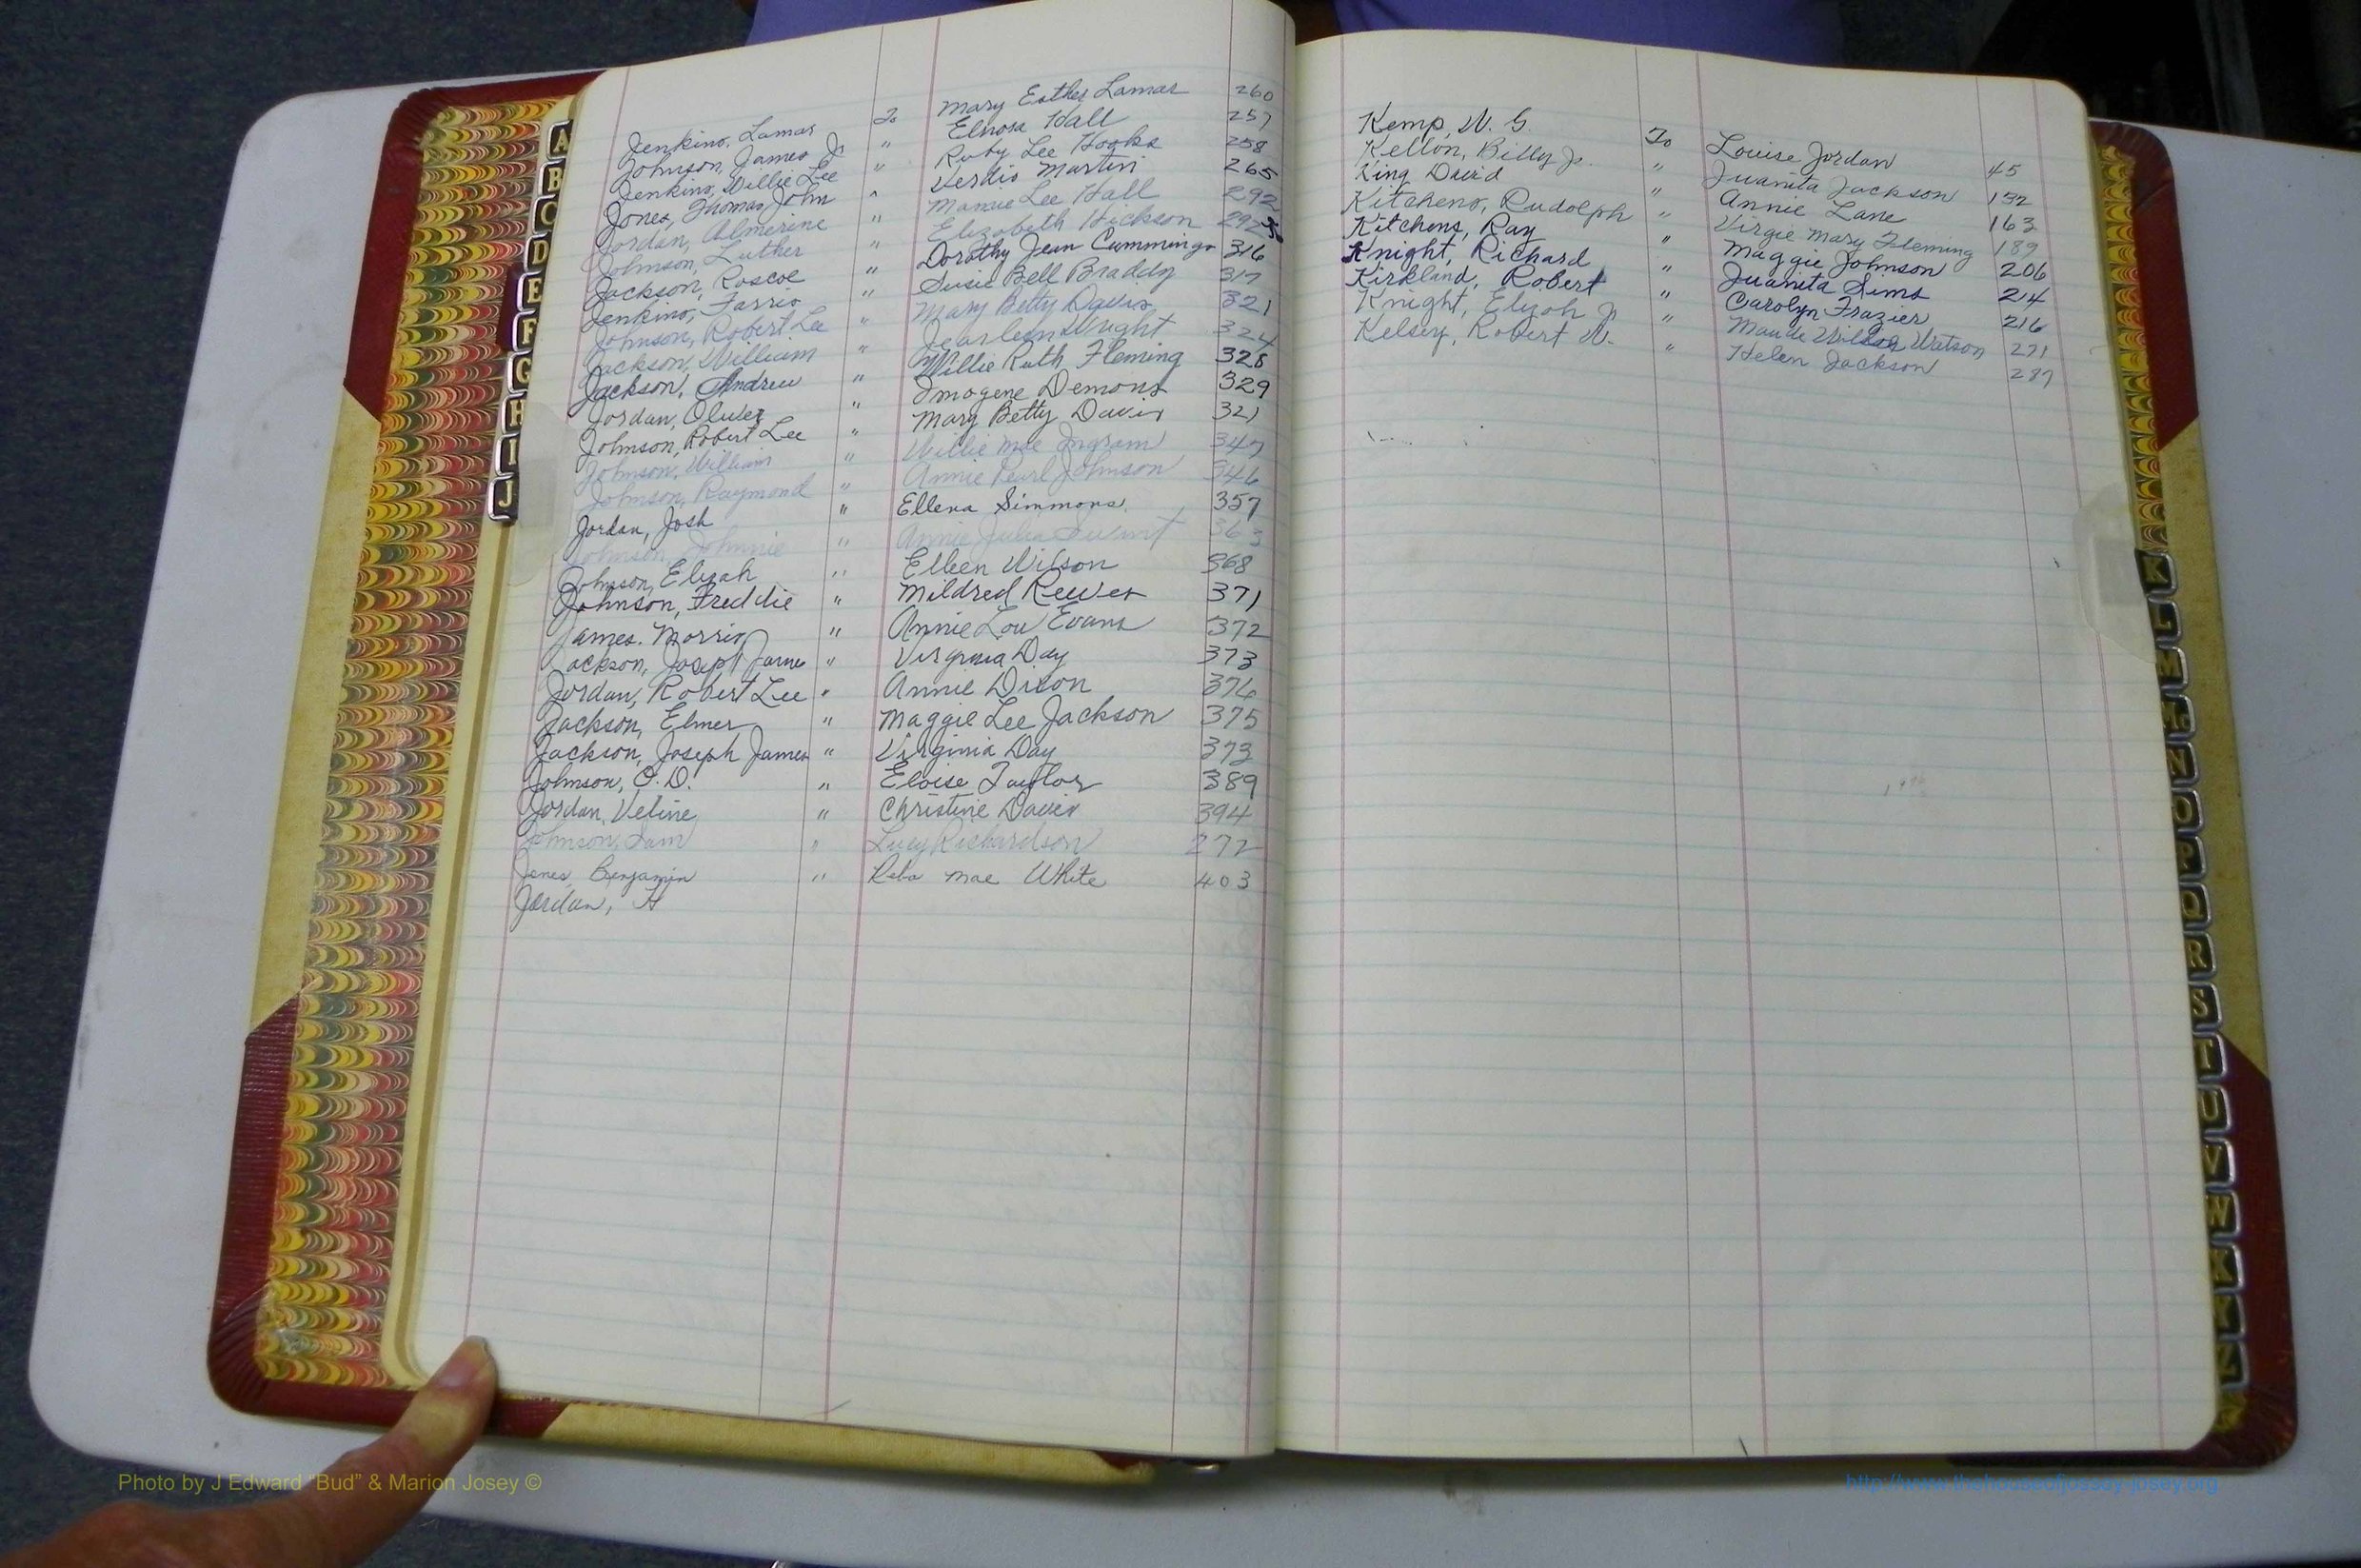 Jenkins, Lamar To Mary Esther Lamar 260
Johnson, James Jr " Elnora Hall 257
Jenkins, Willie Lee " Ruby Lee Hooks 258
Jones, Thomas John " Martin 265
Jordan, Almerine " Mamie Lee Hall 292
Johnson, Luther " Elizabeth Hickson
Jackson, Roscoe " Dorothy Jean Cummings 316
Jenkins, Farris " Susie Bell Braddy 317
Johnson, Robert Lee " Mary Betty Davis 321
Jackson, William " Wright 324
Jackson, Andrew " Willie Ruth Fleming 328
Jordan, Oliver " Imogene Demons 329
Johnson, Robert Lee " Mary Betty Davis 321
Johnson, William " Willie Mae Ingram 347
Johnson, Raymond " Annie Pearl Johnson 346
Jordan, Josh " Ellena Simmons 357
Johnson, Johnnie " Annie Julia 363
Johnson, Elijah " Elleen Wilson 368
Johnson, Freddie " Mildred 371
James. Morris " Annie Lou Evans 372
Jackson, Joseph James " Virginia Day 373
Jordan, Robert Lee " Annie Dixon 374
Jackson, Elmer " Maggie Lee Jackson 375
Jackson, Joseph James " Virginia Day 373
Johnson, O. D. " Eloise Taylor 389
Jordan, Veline " Christine Davis 394
Johnson, Sam " Lucy Richardson 272
Jones Benjamin " Reba Mae White 403
Jordan, H
Kemp, W. G. To Louise Jordan 45
Kellon, Billy Jr. " Juanita Jackson 132
King David " Annie Lane 163
Kitchens, Rudolph " Virgie Mary Fleming 189
Kitchens, Ray " Maggie Johnson 206
Knight, Richard " Juanita Sims 214
Kirkland, Robert " Carolyn Frazier 216
Knight, Elijah Jr " Maude Watson 271
Kelsey, Robert W. " Helen Jackson 287
A
B
C
D
E
F
G
H
I
J
K
L
M
Mc
N
O
P
Q
R
S
T
U
V
W
X
Y
Z
Photo by J Edward "Bud" & Marion Josey ©
http://www.thehouseofjossey-josey.org